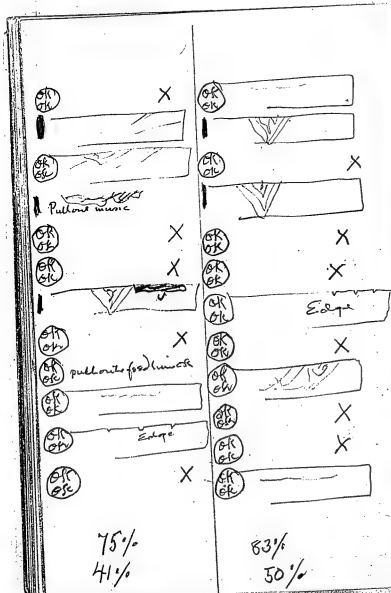 OK
OK X
OK
OK
Pullout music
OK
OK X
OK
OK X
OK
OK X
OK
OK
OK
OK
OK
OK Edge
OK
OK X
75%
41%
OK
OK
OK
OK X
OK
OK X
OK
OK X
OK
OK Edge
OK
OK X
OK
OK
OK
OK X
OK
OK X
OK
OK
83%
50%